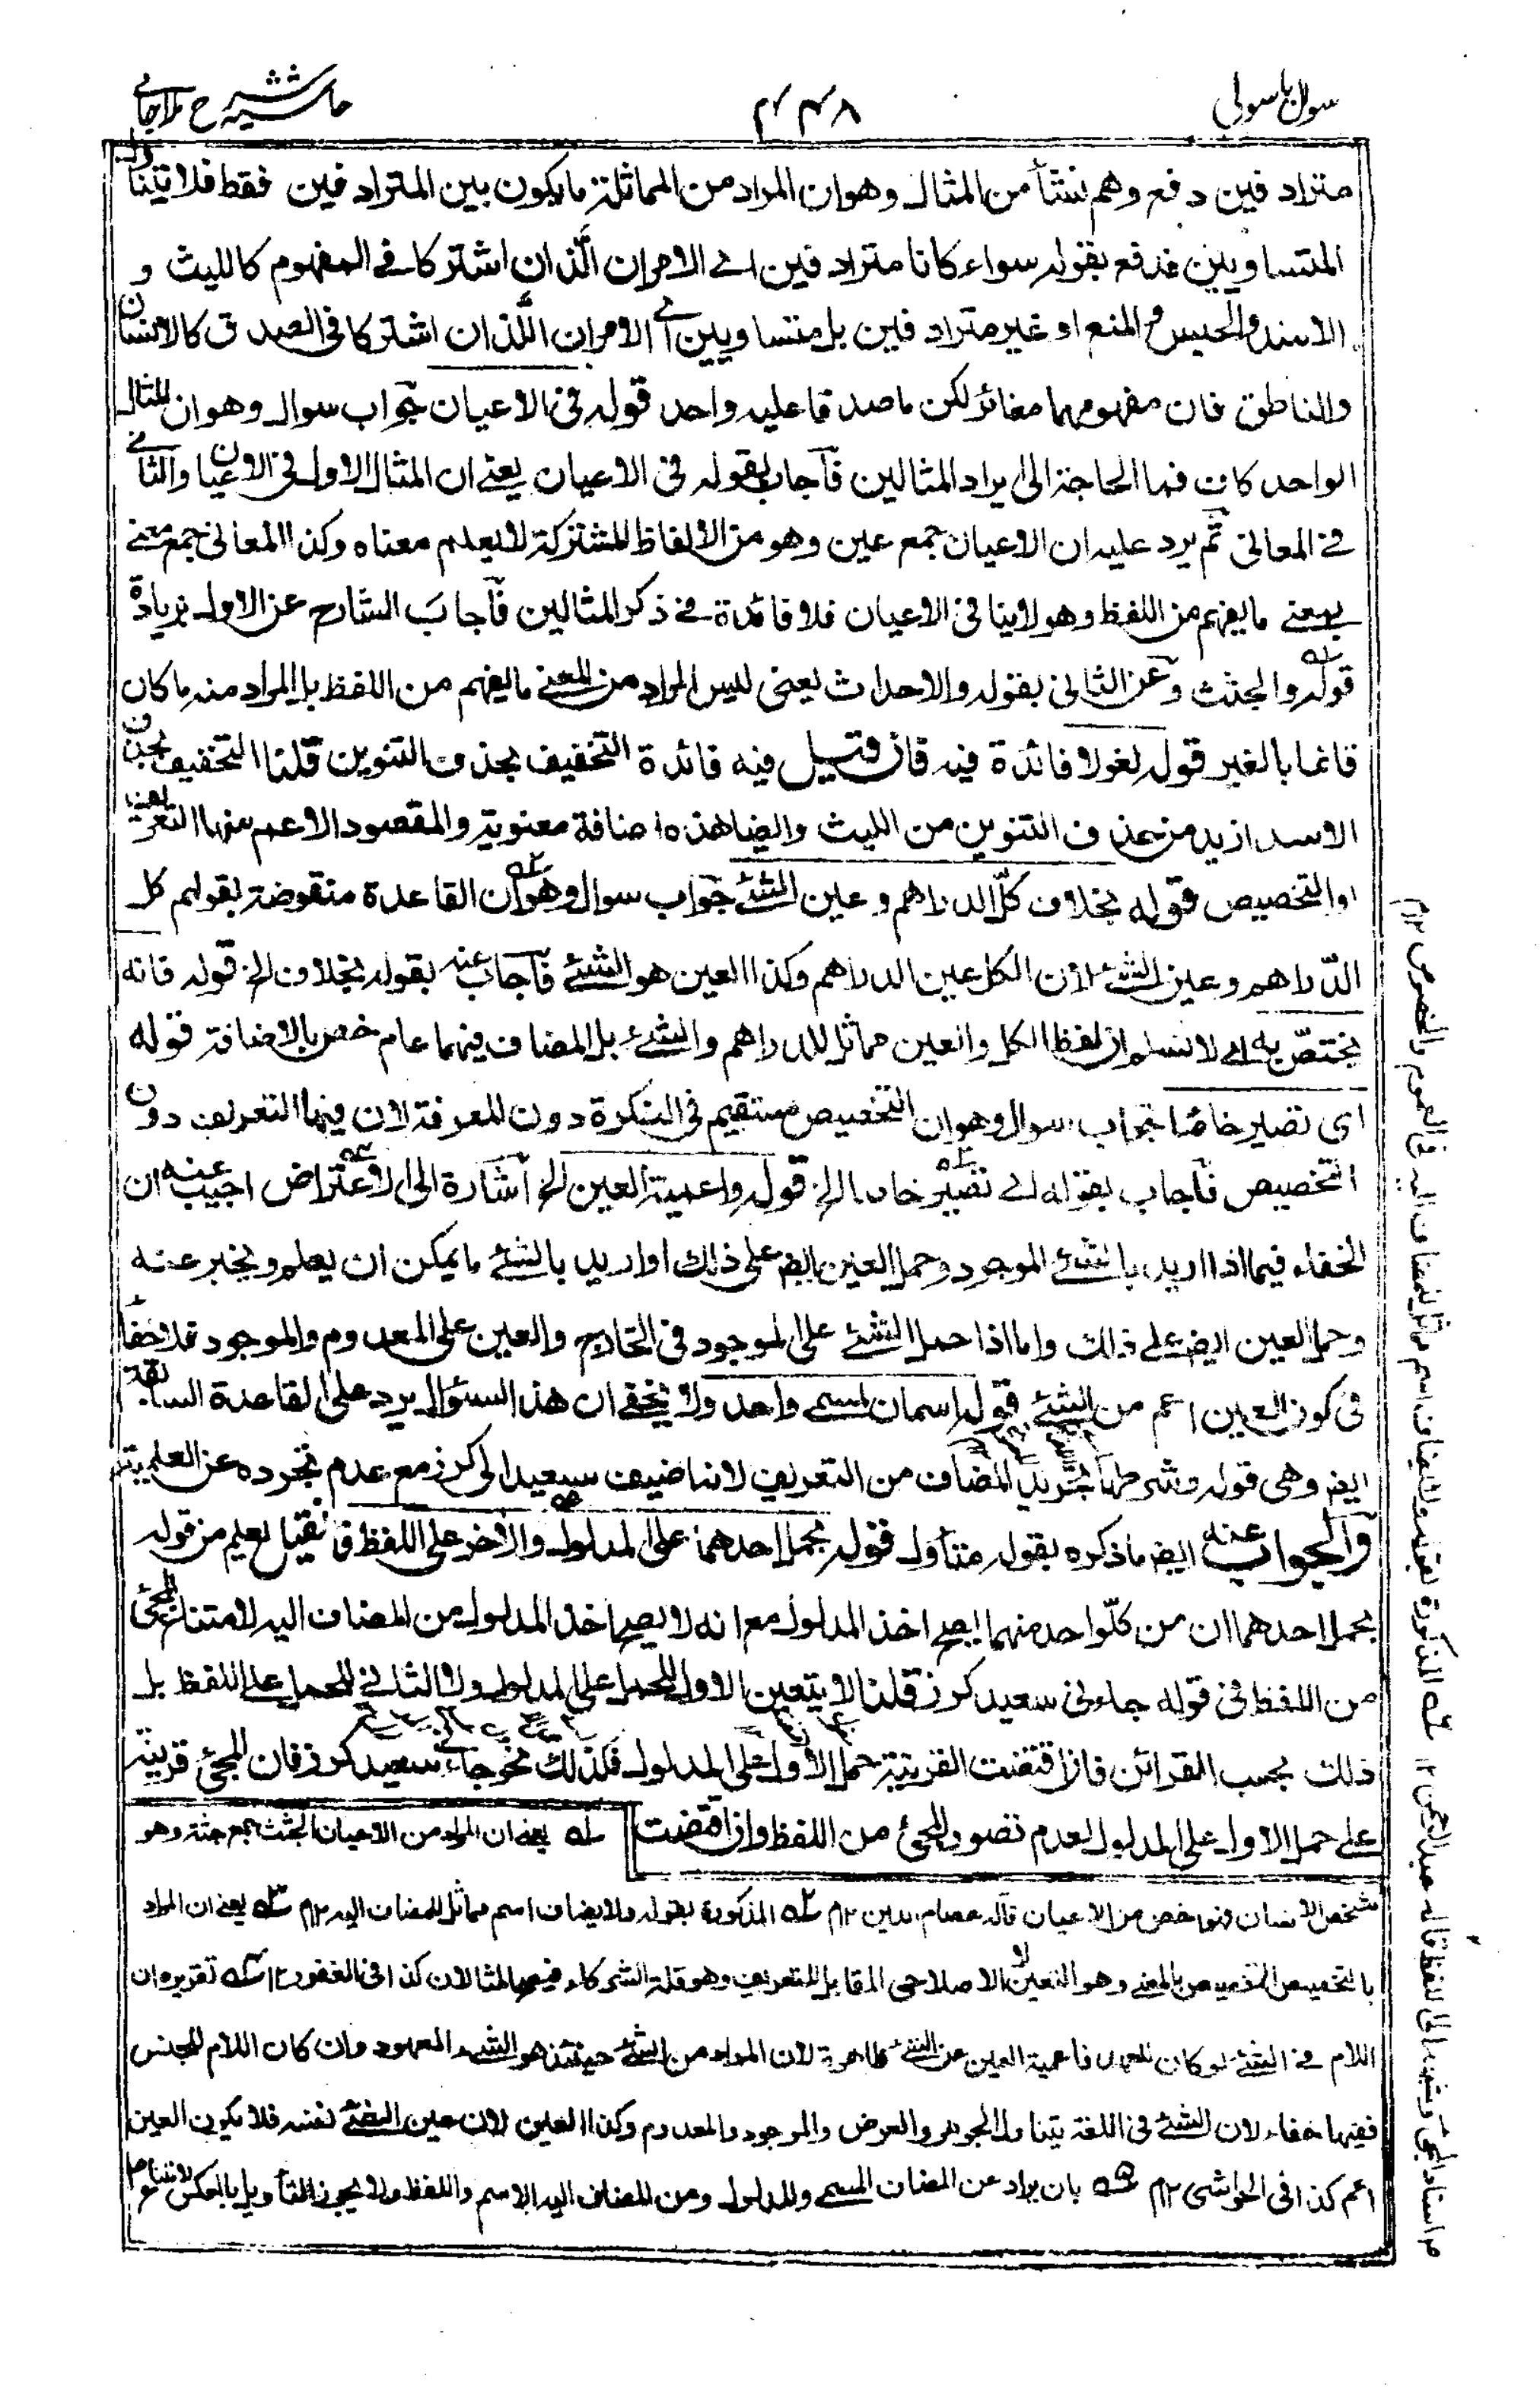 سوال باسولی
۴۴۸
حاشیہ شرح ملا جامی
مترادفين دفع وهم نشأ من المثال وهو ان المراد من المماثلة ما يكون بين المترادفين فقط فلا يتناول
المتساويين فدفع بقوله سواء كانا مترادفين اے الامران الّذان اشتركا فے المفهوم كالليث و
الاسد والحبس والمنع او غير مترادفين بل متساويين اے الامران اللّذان اشتركا فى الصدق كالانسان
والناطق فان مفهومهما مغائر لكن ما صدقا عليه واحد قوله فى الاعيان جواب سوال وهو ان المثال
الواحد كاف فما الحاجة الى ايراد المثالين فآجاب بقوله فى الاعيان يعنے ان المثال الاول فى الاعيان والثانے
فے المعانى ثم يرد عليه ان الاعيان جمع عين وهو من الالفاظ المشتركة لا يعلم معناه وكذا المعانى جمع معنے
بمعنے ما يفهم من اللفظ وهو لا ينافى الاعيان فلا فائدة فے ذكر المثالين فآجابَ الشارح عن الاول بزيادة
قوله والجثث وعن الثانى بقوله والاحداث يعنى ليس المراد من المعنے ما يفهم من اللفظ بل المراد منه ما كان
قائما بالغير قوله لغو لا فائدة فيه فان قيل فيه فائدة التخفيف بحذف التنوين قلنا التخفيف بحذف
الاسد ازيد من حذف التنوين من الليث وايضا هذه اضافة معنوية والمقصود الاعم منها التعريف
او التخصيص قوله بخلاف كلّ الدراهم وعين الشئے جواب سوال وهو ان القاعدة منقوضة بقولهم كل
الدّراهم وعين الشئے لان الكل عين الدراهم وكذا العين هو الشئے فآجاب عنه بقوله بخلاف الخ قوله فانه
يختصّ به اے لا نسلم ان لفظ الكل والعين مماثل للدراهم والشئے بل المضاف فيهما عام خص بالاضافة قوله
اى تصير خاصًا جواب سوال وهو ان التخصيص مستقيم فى النكرة دون المعرفة لان فيها التعريف دون
التخصيص فآجاب بقوله اے تصير خاصا الخ قوله واعمية العين الخ اشارة الى الاعتراض اجيب عنه ان
الخفاء فيما اذا اريد بالشئے الموجود وحمل العين ايضا على ذلك او اريد بالشئے ما يمكن ان يعلم ويخبر عنه
وحمل العين ايضا علے ذلك واما اذا حمل الشئے على الموجود فى الخارج والعين على المعدوم والموجود فلا خفاء
فى كون العين اعم من الشئے قوله اسمان لمسمے واحد ولا يخفے ان هذا السئوال يرد على القاعدة السابقة
ايضا وهى قوله وشرطها تجريد المضاف من التعريف لانا ضيف سعيد الى كرز مع عدم تجرده عن العلمية
والجواب عنه ايضا ما ذكره بقوله متأول قوله بحمل احدهما على المدلول والآخر على اللفظ فان قيل يعلم من قوله
بحمل احدهما ان من كلّ واحد منهما يصح اخذ المدلول مع انه لا يصح اخذ المدلول من المضاف اليه لامتناع المجئ
من اللفظ فى قوله جاءنى سعيد كرز قلنا لا يتعين الاول للحمل على المدلول ولا الثانے للحمل علے اللفظ بل
ذلك بحسب القرائن فان اقتضت القرينة حمل الاول على المدلول فكذلك نحو جاءنے سعيد كرز فان المجئ قرينة
علے حمل الاول على المدلول لعدم تصور المجئ من اللفظ وان اقتضت
ــه يعنے ان المراد من الاعيان الجثث جمع جثة وهو
شخص الانسان فهو اخص من الاعيان قاله عصام الدين ١٢م ــه المذكورة بقوله ولا يضاف اسم مماثل للمضاف اليه ١٢م ــه يعنے ان المراد
بالتخصيص التخصيص بالمعنے وهو التعيين لا الاصلاحى المقابل للتعريف وهو قلة الشركاء فيصح المثالان كذا فى الغفور ١٢ ــه تقريره ان
اللام فے الشئے لو كان للعهد فاعمية العين عن الشئے ظاهرة لان المراد من الشئے حينئذ هو الشئے المعهود وان كان اللام للجنس
ففيها خفاء لان الشئے فى اللغة يتناول الجوهر والعرض والموجود والمعدوم وكذا العين لان عين الشئے نفسه فلا يكون العين
اعم كذا فى الحواشى ١٢م ــه بان يراد عن المضاف المسمے والمدلول ومن المضاف اليه الاسم واللفظ ولا يجوز التأويل بالعكس
ــه المذكورة بقوله ولا يضاف اسم مماثل للمضاف اليه فى العموم والخصوص ١٢م